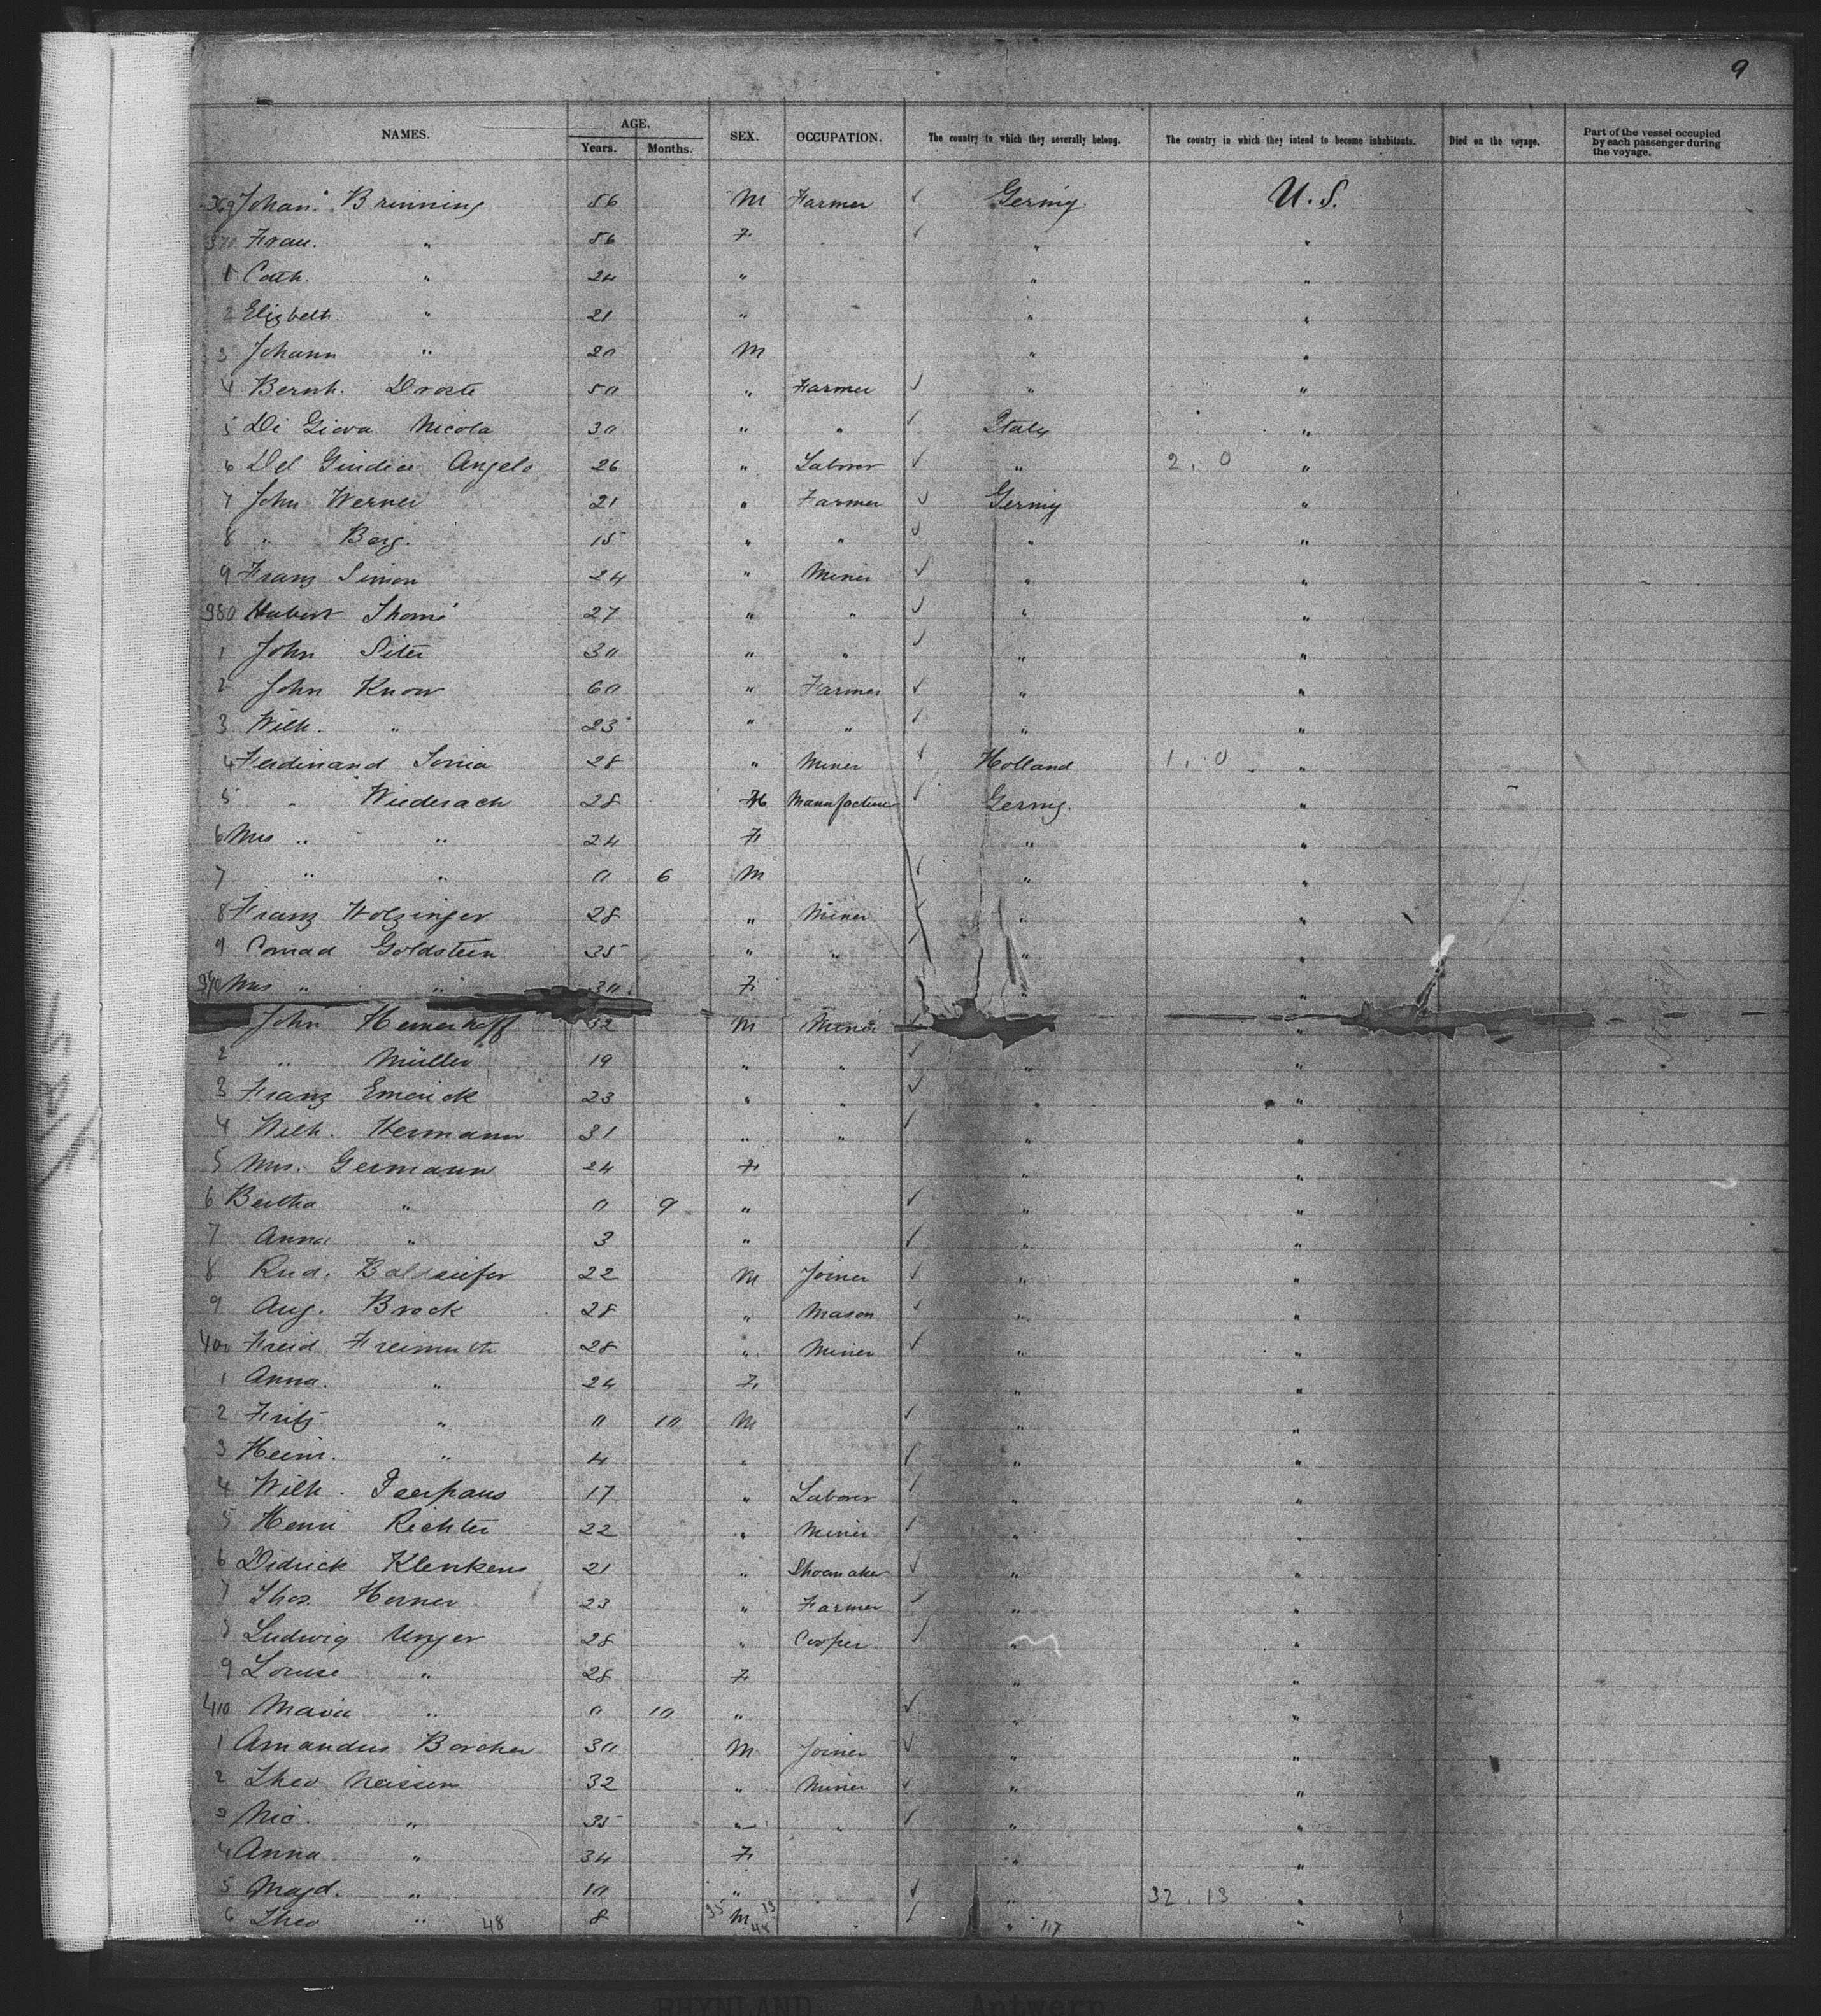 9
NAMES. AGE. SEX. OCCUPATION. The country to which they severally belong. The country in which they intend to become inhabitants. Died on the voyage. Part of the vessel occupied by each passenger during the voyage.
Years. Months.
369 Johan. Brinning 56 M Farmer ✓ Germy. U.S.
370 Frau. " 56 F ✓ " "
1 Cath. " 24 " " "
2 Elizbeth. " 21 " " "
3 Johann " 20 M " "
4 Bernh. Droste 50 " Farmer ✓ " "
5 Di Giova Nicola 30 " " ✓ Italy "
6 Del Giudice Angelo 26 " Labrer ✓ " 2. 0 "
7 John Werner 21 " Farmer ✓ Germy "
8 " Berg. 15 " " ✓ " "
9 Franz Simon 24 " Miner ✓ " "
380 Hubert Thomé 27 " " ✓ " "
1 John Peter 30 " " ✓ " "
2 John Know 60 " Farmer ✓ " "
3 Wilh. " 23 " " ✓ " "
4 Ferdinand 28 " Miner ✓ Holland 1. 0 "
5 " Wiederach 28 M Manufacturer ✓ Germy. "
6 Mrs " " 24 F " "
7 " " 0 6 M ✓ " "
8 Franz Holzinger 28 " Miner ✓ " "
9 Conrad Goldstein 35 " " ✓ " "
390 Mrs " " 30 F " "
John Hemerhoff 32 M Miner ✓ "
2 " Müller 19 " " ✓ " "
3 Franz Emerick 23 " " ✓ " "
4 Wilh. Hermann 31 " " ✓ " "
5 Mrs. Germann 24 F " "
6 Bertha " 0 9 " ✓ " "
7 Anna " 3 " ✓ " "
8 Rud. Baldsiefer 22 M Joiner ✓ " "
9 Aug. Brock 28 " Mason ✓ " "
400 Freid Freimuth 28 " Miner ✓ " "
1 Anna. " 24 F " "
2 Fritz " 0 10 M ✓ " "
3 Heinr. " 4 " ✓ " "
4 Wilh. 17 " Laborer ✓ " "
5 Henri Richter 22 " Miner ✓ " "
6 Didrick Klenkens 21 " Shoemaker ✓ " "
7 Thos. Horner 23 " Farmer ✓ " "
8 Ludwig Unger 28 " Cooper ✓ " "
9 Louise " 28 F " "
410 Marie " 0 10 " ✓ " "
1 Amandus Borcher 30 M Joiner ✓ " "
2 Theo Neissen 32 " Miner ✓ " "
3 Nic. " 35 " " ✓ " "
4 Anna " 34 F " "
5 Magd. " 10 " ✓ " 32. 13 "
6 Theo " 48 8 35 M 13 48 ✓ " 117 "
RHYNLAND Antwerp